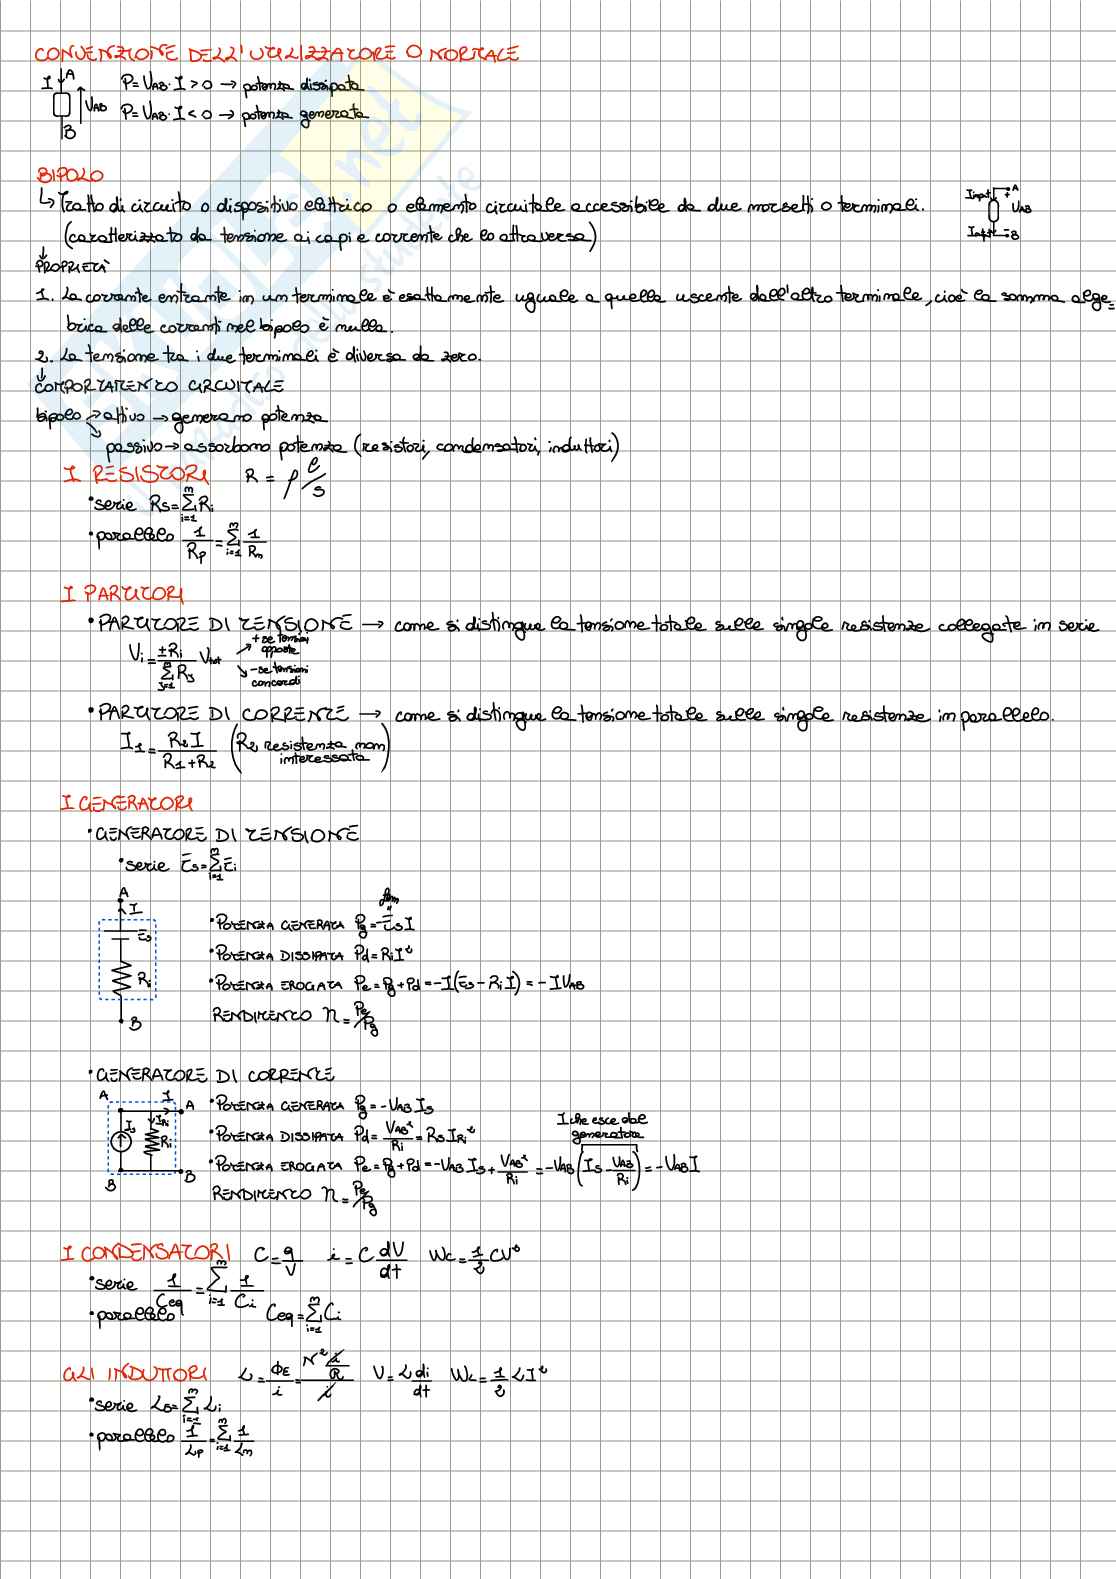 CONVENZIONE DELL'UTILIZZATORE O NORMALE
I A
VAB
B
P=VAB·I>0 → potenza dissipata
P=VAB·I<0 → potenza generata
BIPOLO
↳ Tratto di circuito o dispositivo elettrico o elemento circuitale accessibile da due morsetti o terminali.
(caratterizzato da tensione ai capi e corrente che lo attraversa)
A
VAB
B
PROPRIETÀ
1. La corrente entrante in un terminale è esattamente uguale a quella uscente dall'altro terminale, cioè la somma alge=
brica delle correnti nel bipolo è nulla.
2. La tensione tra i due terminali è diversa da zero.
COMPORTAMENTO CIRCUITALE
bipolo → attivo → generano potenza
passivo → assorbono potenza (resistori, condensatori, induttori)
I RESISTORI R = ρ l/s
• serie Rs=Σ(i=1→n) Ri
• parallelo 1/Rp = Σ(i=1→n) 1/Rn
I PARTITORI
• PARTITORE DI TENSIONE → come si distingue la tensione totale sulle singole resistenze collegate in serie
Vi = ±Ri/Σ(y=1→n) Ry Vtot
+ se tensioni opposte
- se tensioni concordi
• PARTITORE DI CORRENTE → come si distingue la tensione totale sulle singole resistenze in parallelo.
I1 = R2 I/(R1+R2) (R2 resistenza non interessata)
I GENERATORI
• GENERATORE DI TENSIONE
• serie Es=Σ(i=1→n) Ei
A
I
Es
Ri
B
• POTENZA GENERATA Pg=-EsI
• POTENZA DISSIPATA Pd=RiI²
• POTENZA EROGATA Pe=Pg+Pd=-I(Es-RiI)=-IVAB
RENDIMENTO η=Pe/Pg
• GENERATORE DI CORRENTE
A I A
Is IRi Ri
B B
• POTENZA GENERATA Pg=-VAB Is
• POTENZA DISSIPATA Pd=VAB²/Ri=RsIRi²
I che esce dal generatore
• POTENZA EROGATA Pe=Pg+Pd=-VAB Is+VAB²/Ri=-VAB(Is-VAB/Ri)=-VABI
RENDIMENTO η=Pe/Pg
I CONDENSATORI C=q/V i=C dV/dt Wc=1/2 CV²
• serie 1/Ceq=Σ(i=1→n) 1/Ci
• parallelo Ceq=Σ(i=1→n) Ci
GLI INDUTTORI L=ΦE/i=N² i/R/i V=L di/dt WL=1/2 LI²
• serie Ls=Σ(i=1→n) Li
• parallelo 1/Lp=Σ(i=1→n) 1/Ln